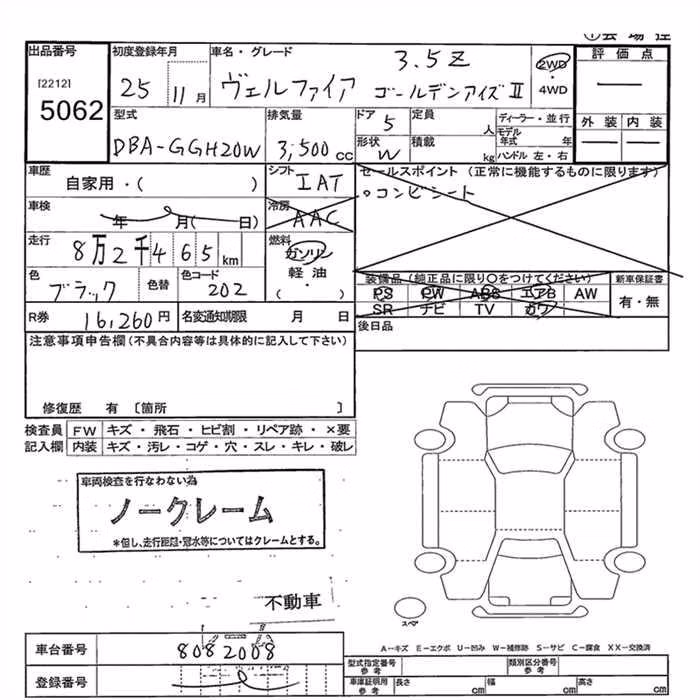 ①会 場 控
出品番号 初度登録年月 車名・グレード 評 価 点
[2212] 5062
25 11月 ヴェルファイア 3.5Z ゴールデンアイズⅡ 2WD・4WD ―
型式 排気量 ドア 5 定員 人 ディーラー・並行 外 装 内 装
DBA-GGH20W 3,500cc 形状 W 積載 kg モデル年式 年 ハンドル 左・右 ― ―
車歴 自家用・( ) シフト IAT セールスポイント (正常に機能するものに限ります)
。コンビシート
車検 年 月( 日) 冷房 AAC
走行 8万2千465km 燃料 ガソリン 軽油・( )
色 ブラック 色替 色コード 202 装備品 (純正品に限り○をつけてください) 新車保証書
PS PW ABS エアB AW 有・無
SR ナビ TV カワ
R券 16,260円 名変通知期限 月 日 後日品
注意事項申告欄(不具合内容等は具体的に記入して下さい)
修復歴 有 〔箇所 〕
検査員 FW キズ・飛石・ヒビ割・リペア跡・×要
記入欄 内装 キズ・汚レ・コゲ・穴・スレ・キレ・破レ
車両検査を行なわない為
ノークレーム
*但し、走行距離・冠水等についてはクレームとする。
不動車
スペア
A-キズ E-エクボ U-凹み W-補修跡 S-サビ C-腐食 XX-交換済
車台番号 8082008 型式指定番号 参考 類別区分番号 参考
登録番号 車庫証明用 参考 長さ cm 幅 cm 高さ cm